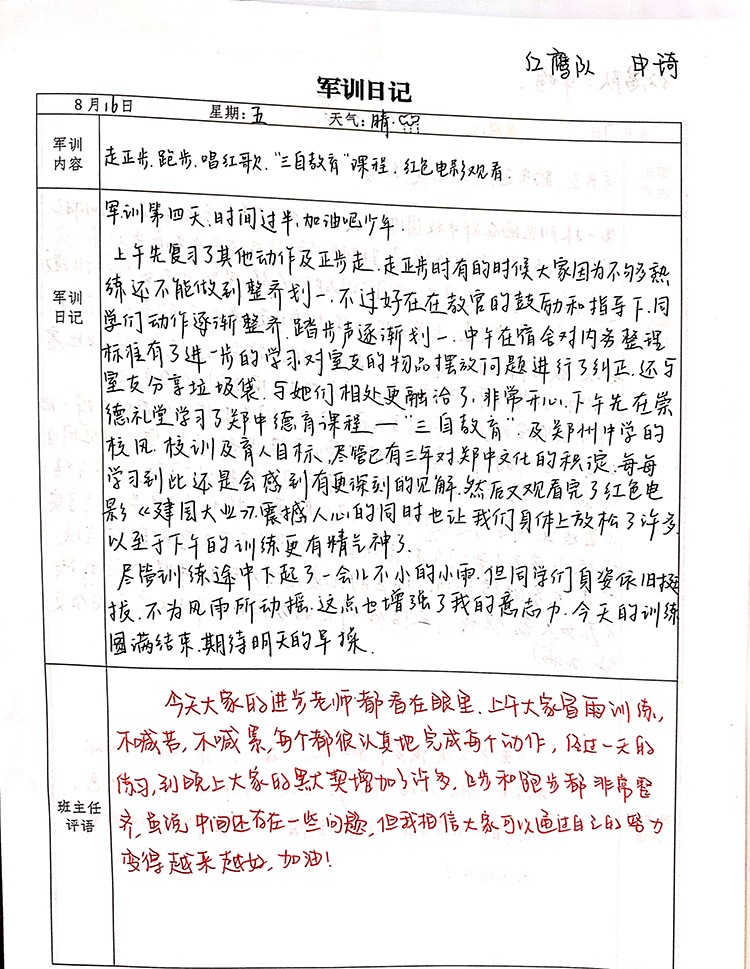 红鹰队 申琦
军训日记
8月16日 星期:五 天气:晴.
军训
内容
走正步.跑步.唱红歌."三自教育"课程.红色电影观看.
军训
日记
军训第四天.时间过半.加油吧少年.
上午先复习了其他动作及正步走.走正步时有的时候大家因为不够熟
练还不能做到整齐划一.不过好在在教官的鼓励和指导下.同
学们动作逐渐整齐.踏步声逐渐划一.中午在宿舍对内务整理
标准有了进一步的学习对室友的物品摆放问题进行了纠正.还与
室友分享垃圾袋.与她们相处更融洽了.非常开心.下午先在崇
德礼堂学习了郑中德育课程—"三自教育".及郑州中学的
校风.校训及育人目标.尽管已有三年对郑中文化的积淀.每每
学习到此还是会感到有更深刻的见解.然后又观看完了红色电
影《建国大业》.震撼人心的同时也让我们身体上放松了许多.
以至于下午的训练更有精气神了.
尽管训练途中下起了一会儿不小的小雨.但同学们身姿依旧挺
拔.不为风雨所动摇.这点也增强了我的意志力.今天的训练
圆满结束.期待明天的早操.
班主任
评语
今天大家的进步老师都看在眼里.上午大家冒雨训练,
不喊苦,不喊累,每个都很认真地完成每个动作,经过一天的
练习,到晚上大家的默契增加了许多.正步和跑步都非常整
齐,虽说中间还存在一些问题,但我相信大家可以通过自己的努力
变得越来越好,加油!